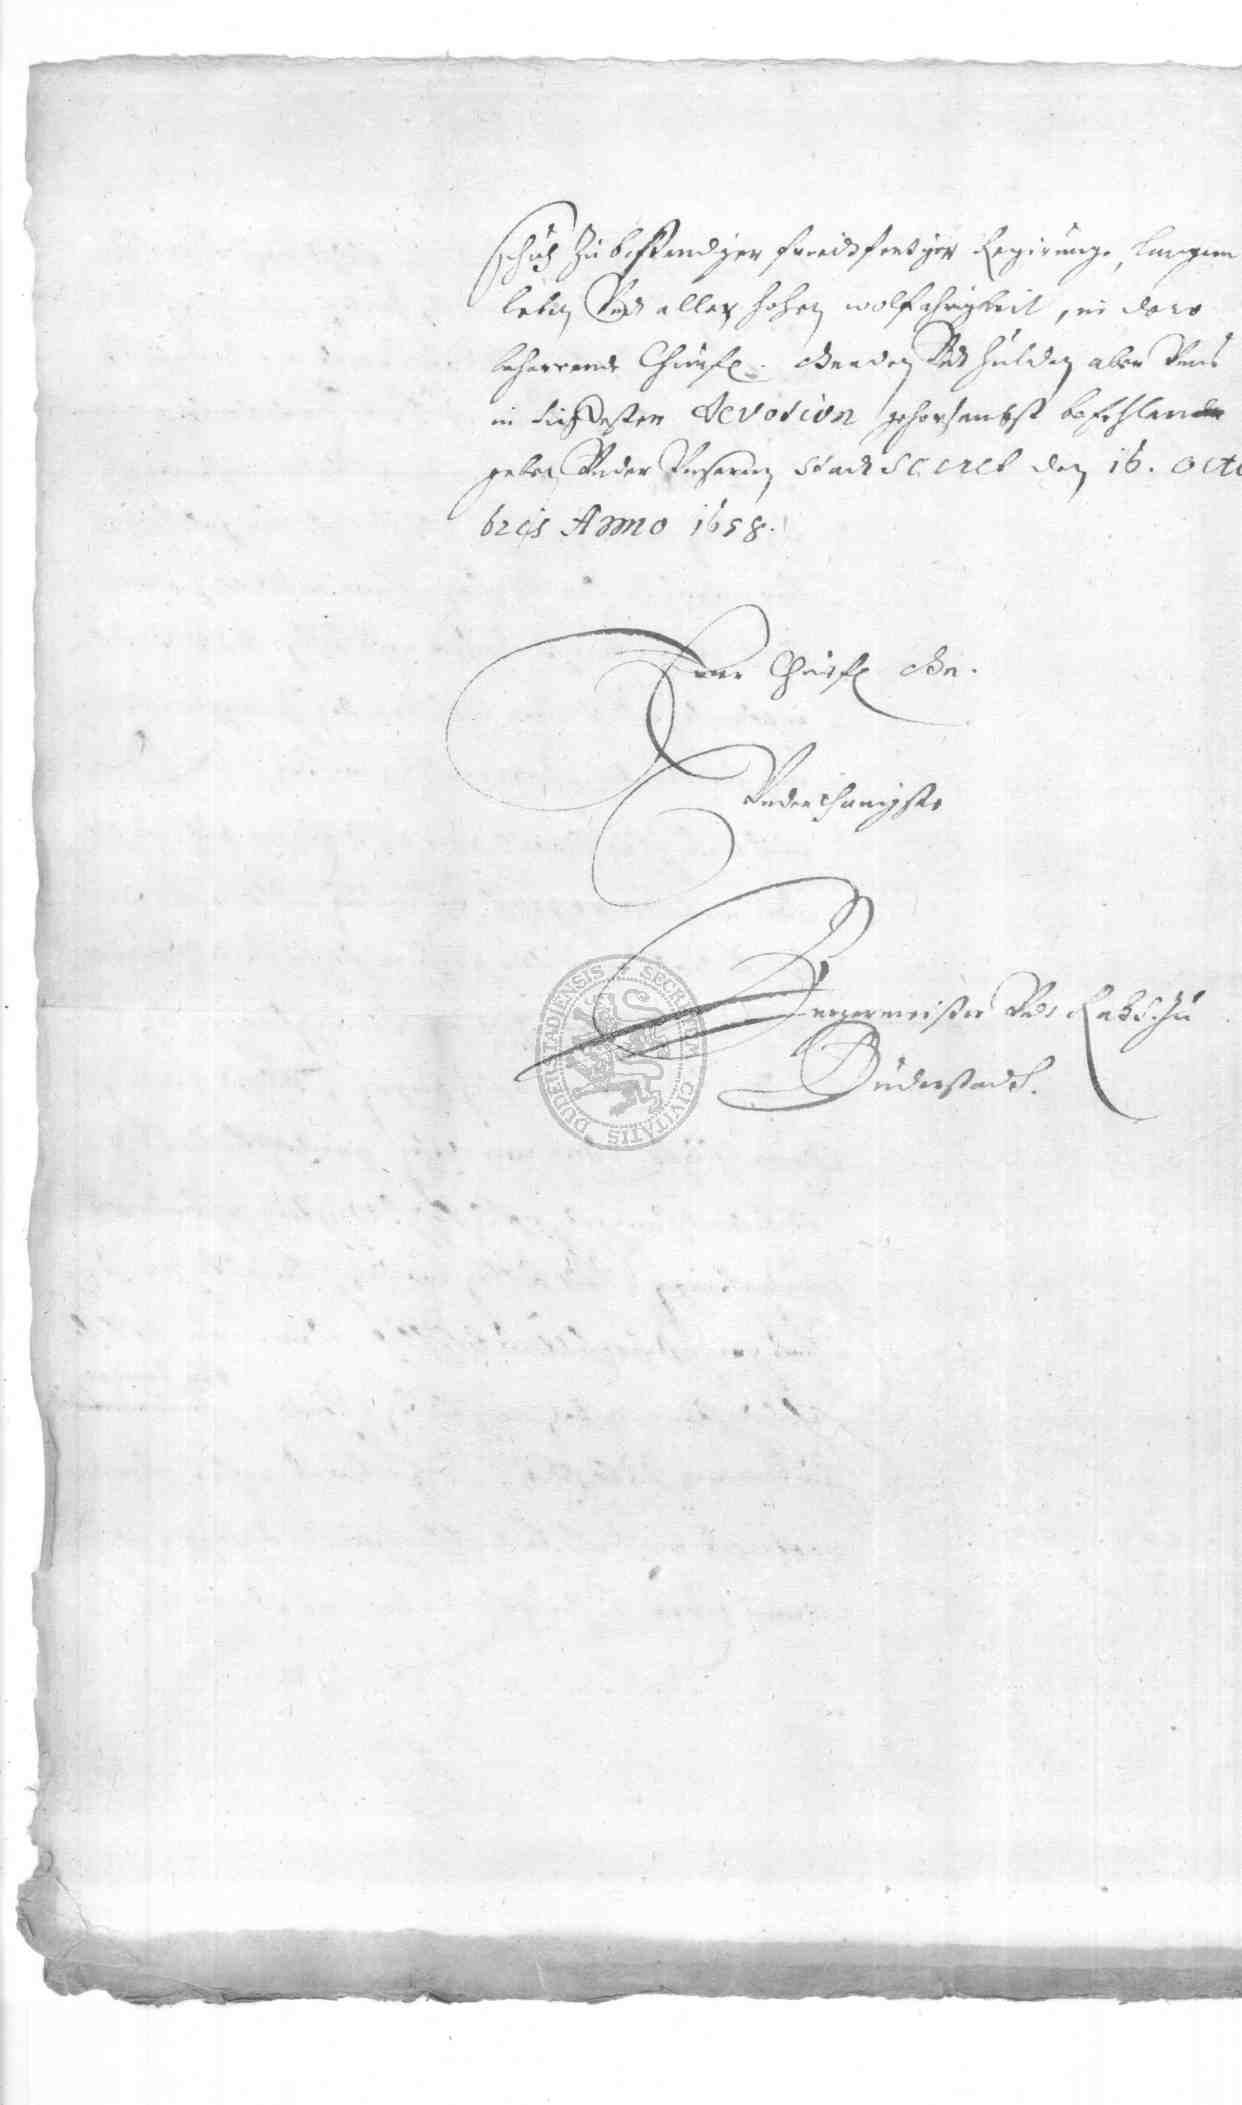 schutz zu bestendiger freidtfertiger Regirunge, langem
leben Undt aller hohen wolfahrigkeit, in dero
beharrende Churfl. Gnaden Undt hulden aber Uns
in tieffesten devotion gehorsambst befehlende
geben Under Unserm Stadt Secret den 16. Octo
bris Anno 1658.
Ewer Churfl Gn.
Underthänigste
Burgermeister Undt Raht zu
Duderstadt.
SECRETUM CIVITATIS DUDERSTADIENSIS